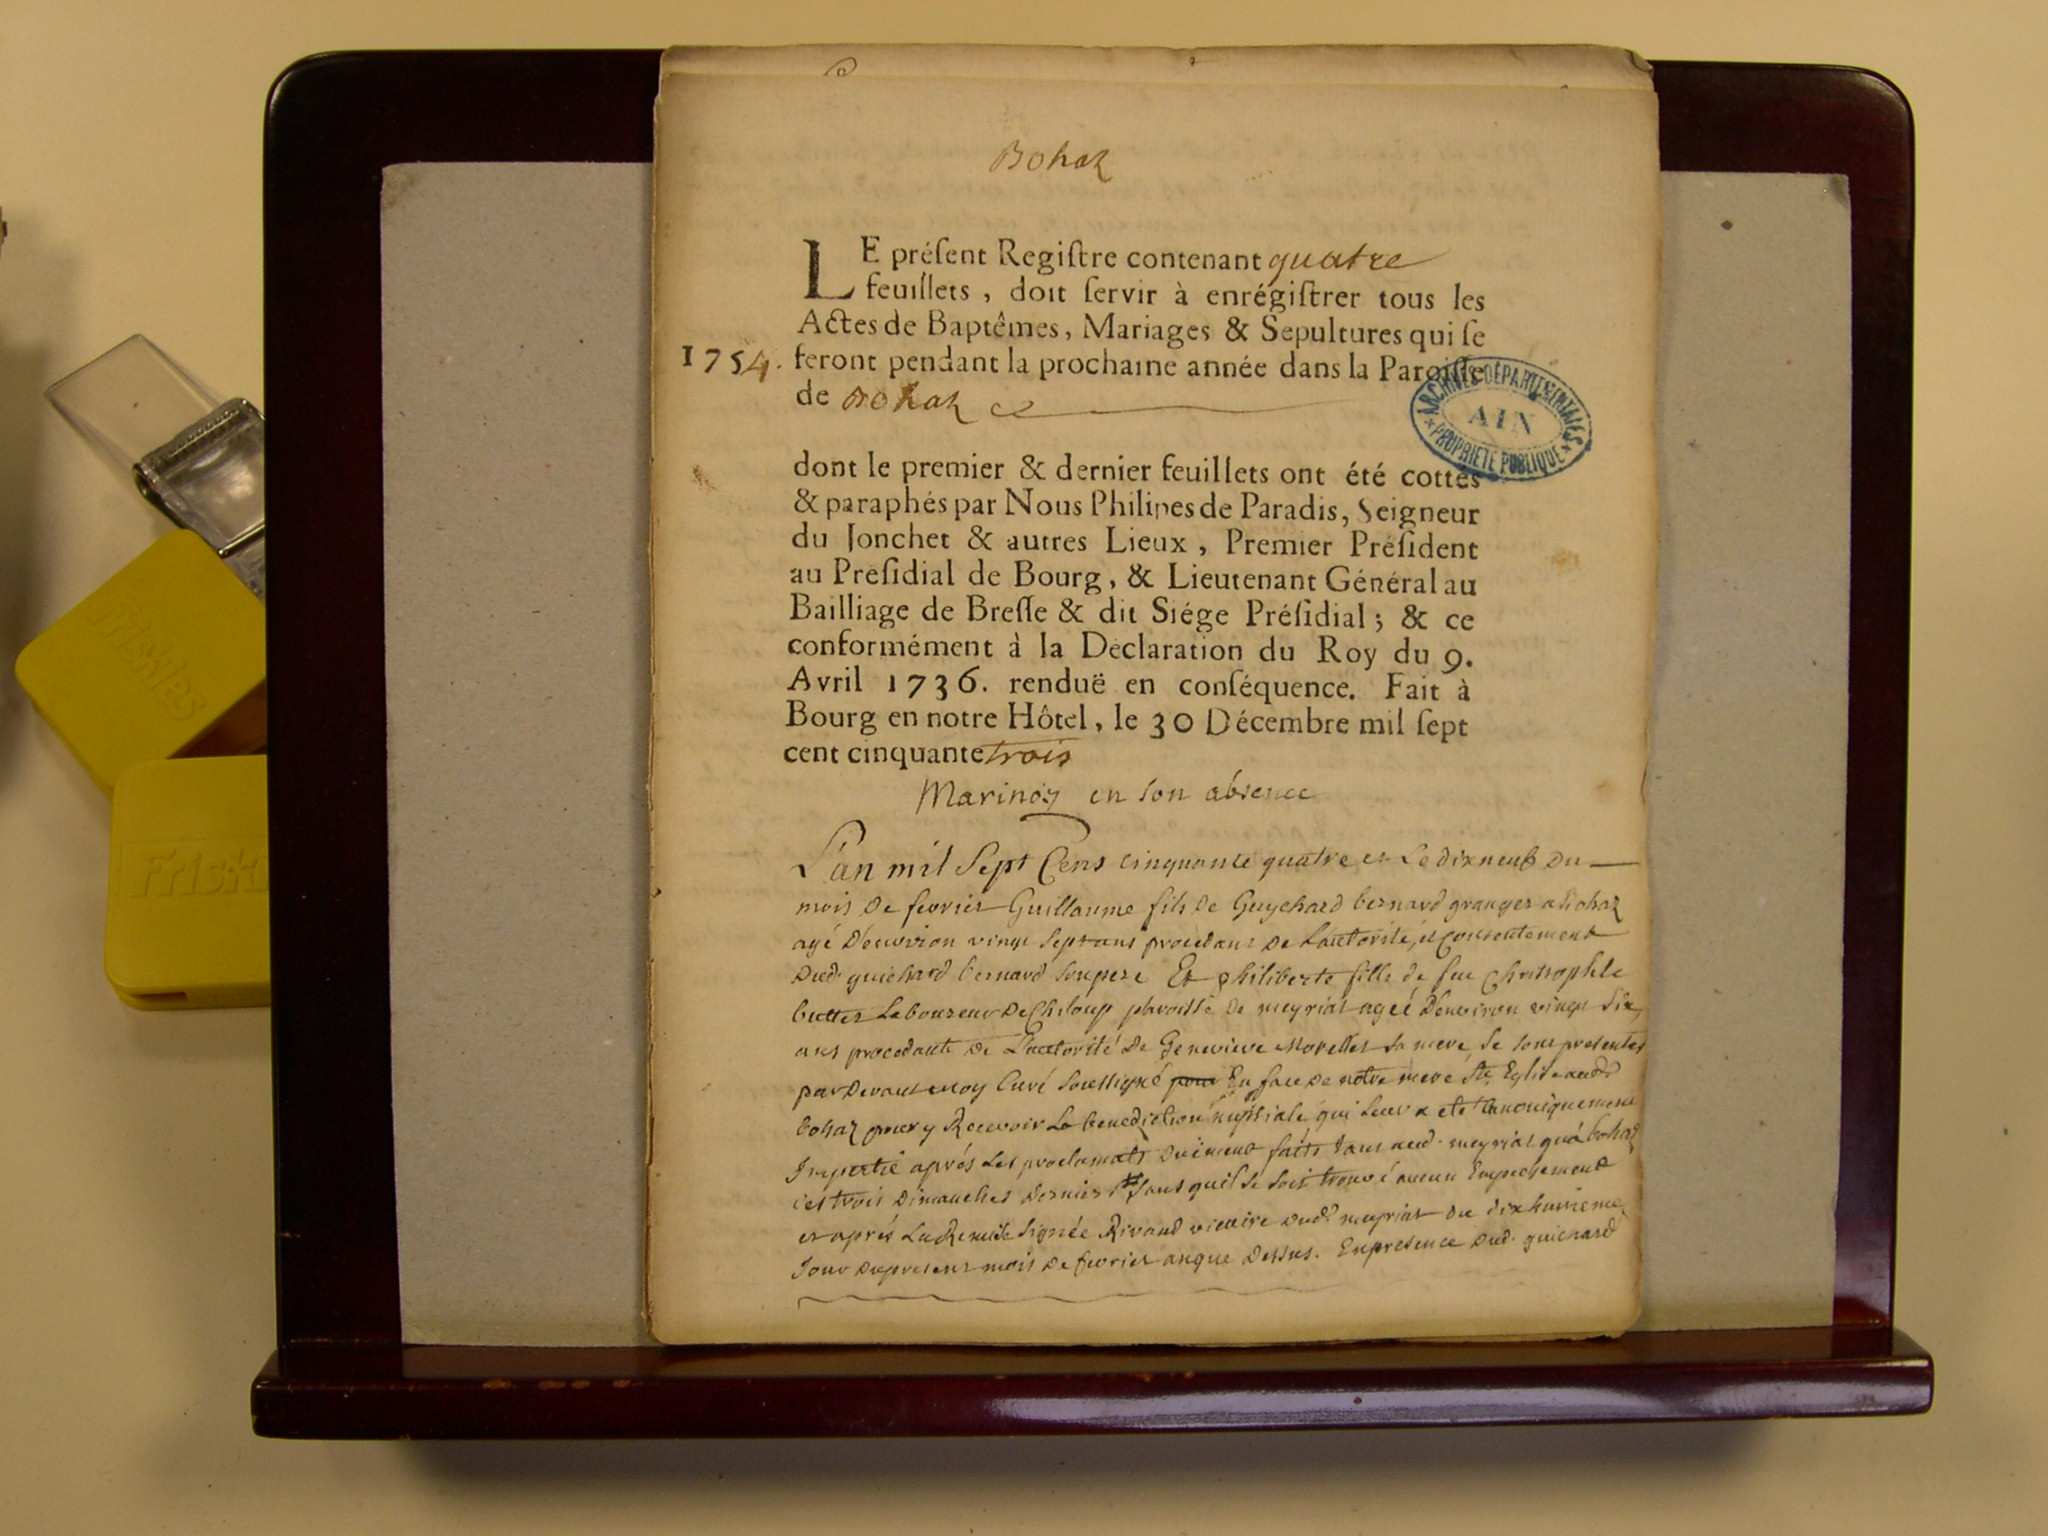 Bohaz
LE préſent Regiſtre contenant quatre
feuillets, doit ſervir à enrégiſtrer tous les
Actes de Baptêmes, Mariages & Sepultures qui ſe
1754. feront pendant la prochaine année dans la Paroiſſe
de Bohaz
ARCHIVES DÉPARTEMENTALES
AIN
PROPRIÉTÉ PUBLIQUE
dont le premier & dernier feuillets ont été cottés
& paraphés par Nous Philipes de Paradis, Seigneur
du Jonchet & autres Lieux, Premier Préſident
au Préſidial de Bourg, & Lieutenant Général au
Bailliage de Breſſe & dit Siége Préſidial; & ce
conformément à la Déclaration du Roy du 9.
Avril 1736. renduë en conſéquence. Fait à
Bourg en notre Hôtel, le 30 Décembre mil ſept
cent cinquante trois
Marinoz en son absence
L'an mil Sept Cens cinquante quatre et Le dixneuf Du
mois De fevrier Guillaume fils De Guychard bernard granger a Bohaz
agé D'environ vingt Sept ans procedant De L'autorité, et Consentement
Dud. guichard bernard Son pere Et philiberte fille de feu Christophle
butter Laboureur De Chiloup parroisse De meyriat ageé D'environ vingt Six
ans procedante De L'autorité De Genevieve Morellet Sa mere Se Sont presentés
par Devant Moy Curé Soussigné pour En face De notre mere Ste. Eglise aud.
bohaz pour y Recevoir La benediction nuptiale qui Leur a eté Canoniquement
Impartie aprés Les proclamats Duëment faits Tant aud. meyriat qu'á bohaz
ces trois Dimanches Derniers Sans quil Se Soit trouvé aucun Empechement
et aprés La Remise Signée Rivaud vicaire Dud. meyriat Du dix huitieme
Jour Du present mois De fevrier an que Dessus. En presence Dud. guichard
Friskies
Frisk